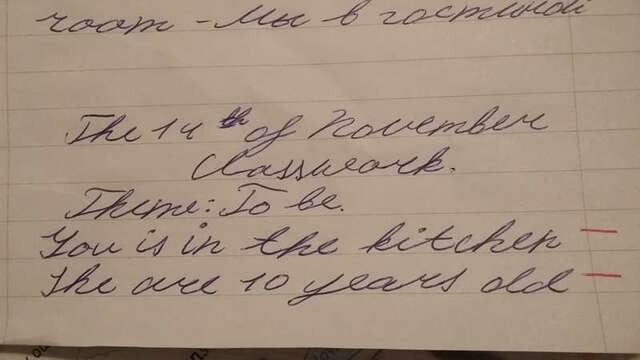 room - Мы в гостиной
The 14th of November
Classwork.
Theme: To be.
You is in the kitchen
She are 10 years old